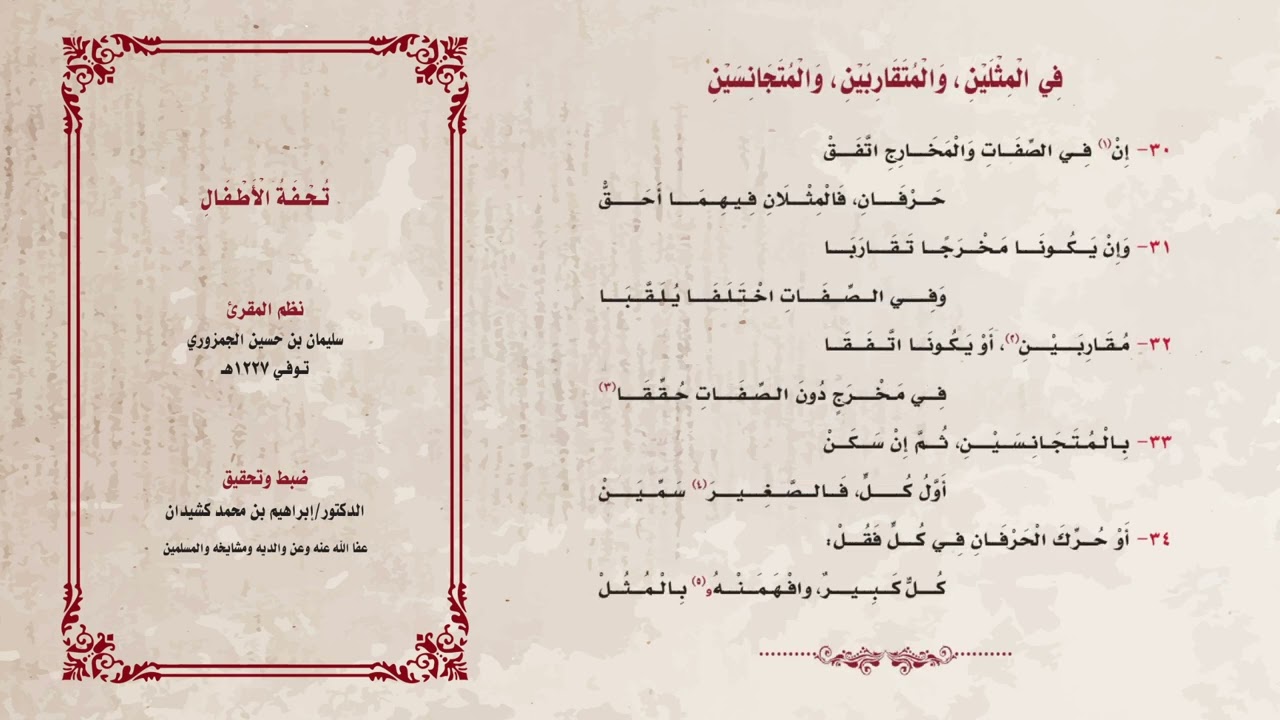 فِي الْمِثْلَيْنِ، وَالْمُتَقَارِبَيْنِ، وَالْمُتَجَانِسَيْنِ
٣٠- إِنْ(١) فِي الصِّفَاتِ وَالْمَخَارِجِ اتَّفَقْ
حَرْفَانِ، فَالْمِثْلَانِ فِيهِمَا أَحَقُّ
٣١- وَإِنْ يَكُونَا مَخْرَجًا تَقَارَبَا
وَفِي الصِّفَاتِ اخْتَلَفَا يُلَقَّبَا
٣٢- مُقَارِبَيْنِ(٢)، أَوْ يَكُونَا اتَّفَقَا
فِي مَخْرَجٍ دُونَ الصِّفَاتِ حُقِّقَا(٣)
٣٣- بِالْمُتَجَانِسَيْنِ، ثُمَّ إِنْ سَكَنْ
أَوَّلُ كُلٍّ، فَالصَّغِيرَ(٤) سَمِّيَنْ
٣٤- أَوْ حُرِّكَ الْحَرْفَانِ فِي كُلٍّ فَقُلْ:
كُلٌّ كَبِيرٌ، وافْهَمَنْهُو(٥) بِالْمُثُلْ
تُحْفَةُ الْأَطْفَالِ
نظم المقرئ
سليمان بن حسين الجمزوري
توفي ١٢٢٧هـ
ضبط وتحقيق
الدكتور/إبراهيم بن محمد كشيدان
عفا الله عنه وعن والديه ومشايخه والمسلمين